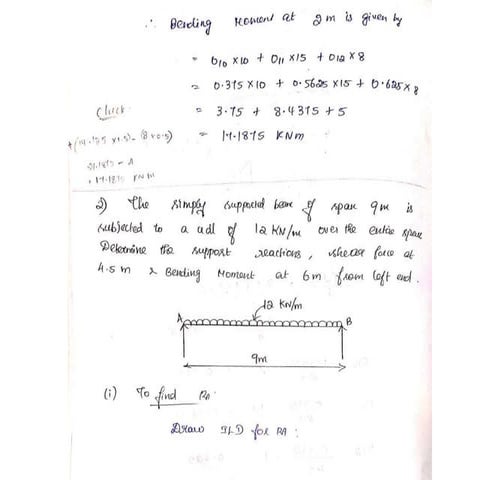 ∴ Bending Moment at 2m is given by
= 010 × 10 + 011 × 15 + 012 × 8
= 0.375 × 10 + 0.5625 × 15 + 0.625 × 8
Check
= 3.75 + 8.4375 + 5
= 17.1875 KNm
+ 17.1875 KNm
2) The simply supported beam of span 9m is
subjected to a udl of 12 KN/m over the entire span
Determine the support reactions, shear force at
4.5 m & Bending Moment at 6m from left end.
12 KN/m
A B
9m
(i) To find RA.
Draw ILD for RA: